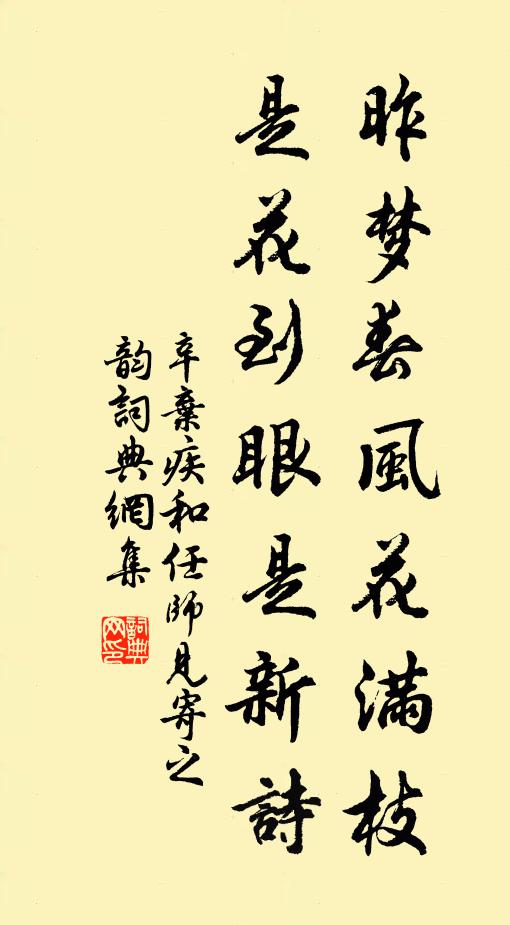 昨梦春風花满枝
是花到眼是新詩
辛棄疾和任師見寄之
韵詞典網集
詞典网印